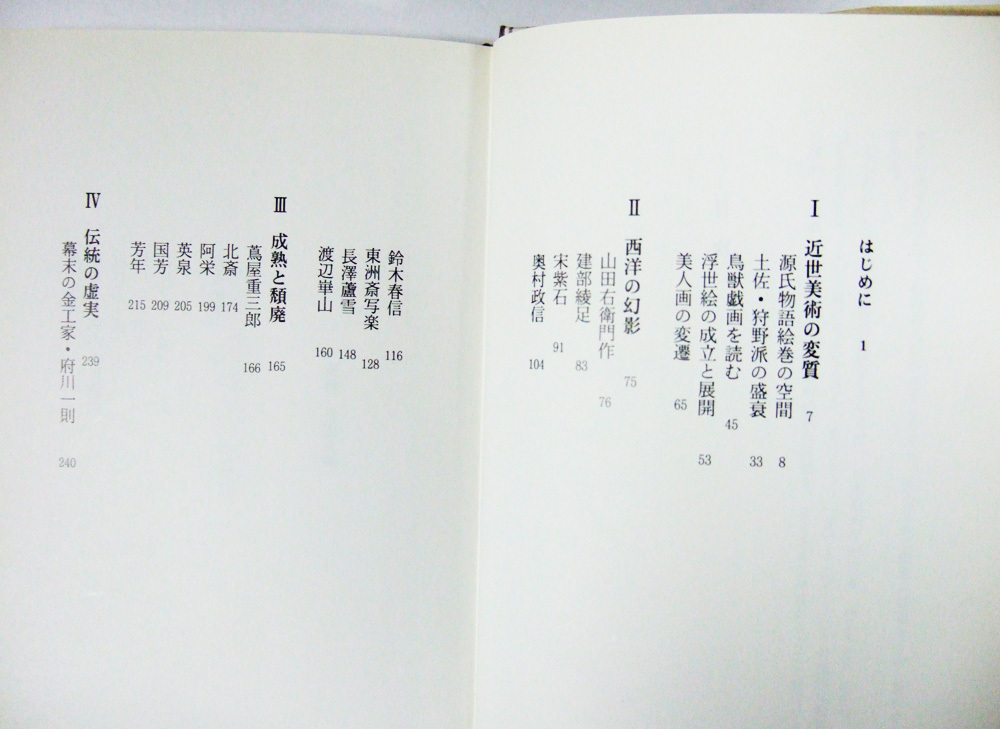 はじめに 1
Ⅰ 近世美術の変質 7
源氏物語絵巻の空間 8
土佐・狩野派の盛衰 33
鳥獣戯画を読む 45
浮世絵の成立と展開 53
美人画の変遷 65
Ⅱ 西洋の幻影 75
山田右衛門作 76
建部綾足 83
宋紫石 91
奥村政信 104
鈴木春信 116
東洲斎写楽 128
長澤蘆雪 148
渡辺崋山 160
Ⅲ 成熟と頽廃 165
蔦屋重三郎 166
北斎 174
阿栄 199
英泉 205
国芳 209
芳年 215
Ⅳ 伝統の虚実 239
幕末の金工家・府川一則 240